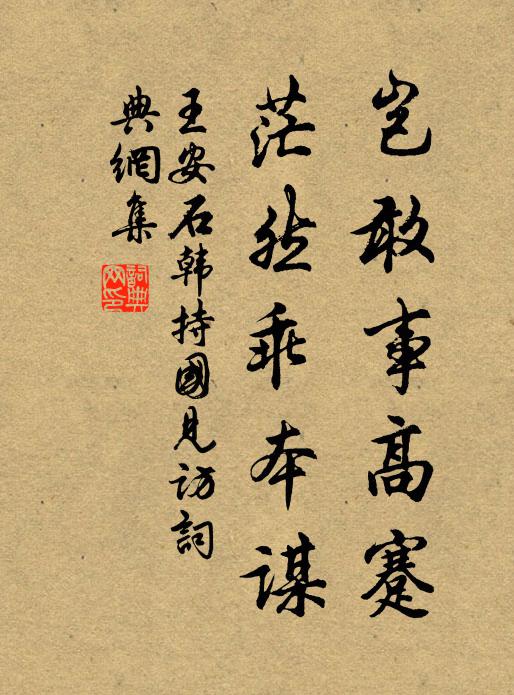 岂敢事高蹇
茫然乖本谋
王安石韩持國见访詞
典網集
詞典网印